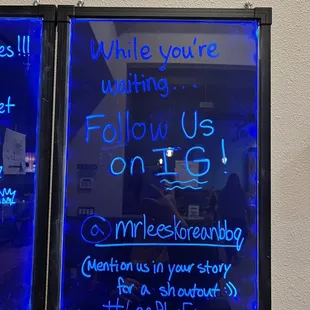 es!!!
et
While you're
waiting...
Follow Us
on IG!
@mrleeskoreanbbq
(Mention us in your story
for a shoutout :))